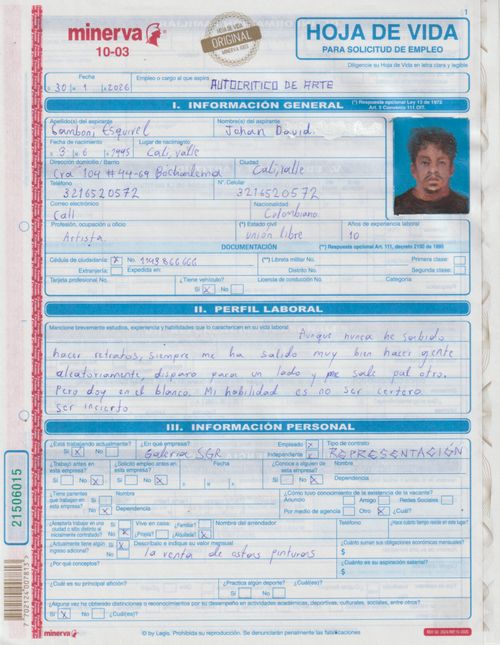 1
minerva
10-03
HOJA DE VIDA
ORIGINAL
MINERVA 1003
HOJA DE VIDA
PARA SOLICITUD DE EMPLEO
Diligencie su Hoja de Vida en letra clara y legible
Fecha
30 1 2026
Empleo o cargo al que aspira
AUTOCRITICO DE ARTE
I. INFORMACIÓN GENERAL
(*) Respuesta opcional Ley 13 de 1972
Art. 5 Convenio 111 OIT.
Apellido(s) del aspirante
Gamboni Esquivel
Nombre(s) del aspirante
Johan David.
Fecha de nacimiento
3 6 1995
Lugar de nacimiento
Cali, valle
Dirección domicilio / Barrio
Cra 104 # 44-69 Bochalema
Ciudad
Cali, valle
Teléfono
3216520572
N°. Celular
3216520572
Correo electrónico
Call
Nacionalidad
Colombiano
Profesión, ocupación u oficio
Artista
(*) Estado civil
union libre
Años de experiencia laboral
10
DOCUMENTACIÓN
(**) Respuesta opcional Art. 111, decreto 2150 de 1995
Cédula de ciudadanía: X No. 1143866666
(**) Libreta militar No.
Primera clase:
Extranjería:
Expedida en:
Distrito No.
Segunda clase:
Tarjeta profesional No.
¿Tiene vehículo?
Sí X No
Licencia de conducción No.
Categoría
II. PERFIL LABORAL
Mencione brevemente estudios, experiencia y habilidades que lo caractericen en su vida laboral:
Aunque nunca he sabido
hacer retratos, siempre me ha salido muy bien hacer gente
aleatoriamente, disparo para un lado y me sale pal otro.
Pero doy en el blanco. Mi habilidad es no ser certero
ser incierto
III. INFORMACIÓN PERSONAL
¿Está trabajando actualmente?
Sí X No
¿En qué empresa?
Galeria SGR
Empleado X
Independiente X
Tipo de contrato
REPRESENTACIÓN
¿Trabajó antes en
esta empresa?
Sí No X
¿Solicitó empleo antes en
esta empresa?
Sí No X
Fecha
¿Conoce a alguien de
esta empresa?
Sí No X
Nombre
Dependencia
¿Tiene parientes
que trabajen en
esta empresa?
Sí
No X
Nombre
Dependencia
¿Cómo tuvo conocimiento de la existencia de la vacante?
Anuncio Amigo Redes Sociales
Por medio de agencia Otro X ¿Cuál?
¿Aceptaría trabajar en una
ciudad o sitio distinto al
inicialmente contratado?
Sí
No X
Vive en casa:
¿Propia?
¿Familiar?
¿Alquilada? X
Nombre del arrendador
Teléfono
¿Hace cuánto tiempo reside en este lugar?
¿Actualmente tiene algún
ingreso adicional?
Sí X
No
Descríbalo e indique su valor mensual
la venta de estas pinturas
¿Cuánto suman sus obligaciones económicas mensuales?
$
¿Por qué conceptos?
¿Cuánto es su aspiración salarial?
$
¿Cuál es su principal afición?
¿Practica algún deporte?
Sí No
¿Cuál(es)?
¿Alguna vez ha obtenido distinciones o reconocimientos por su desempeño en actividades académicas, deportivas, culturales, sociales, entre otros?
Sí X No ¿Cuál(es)?
minerva
© by Legis. Prohibida su reproducción. Se denunciarán penalmente las falsificaciones
21506015
7 702124 007813